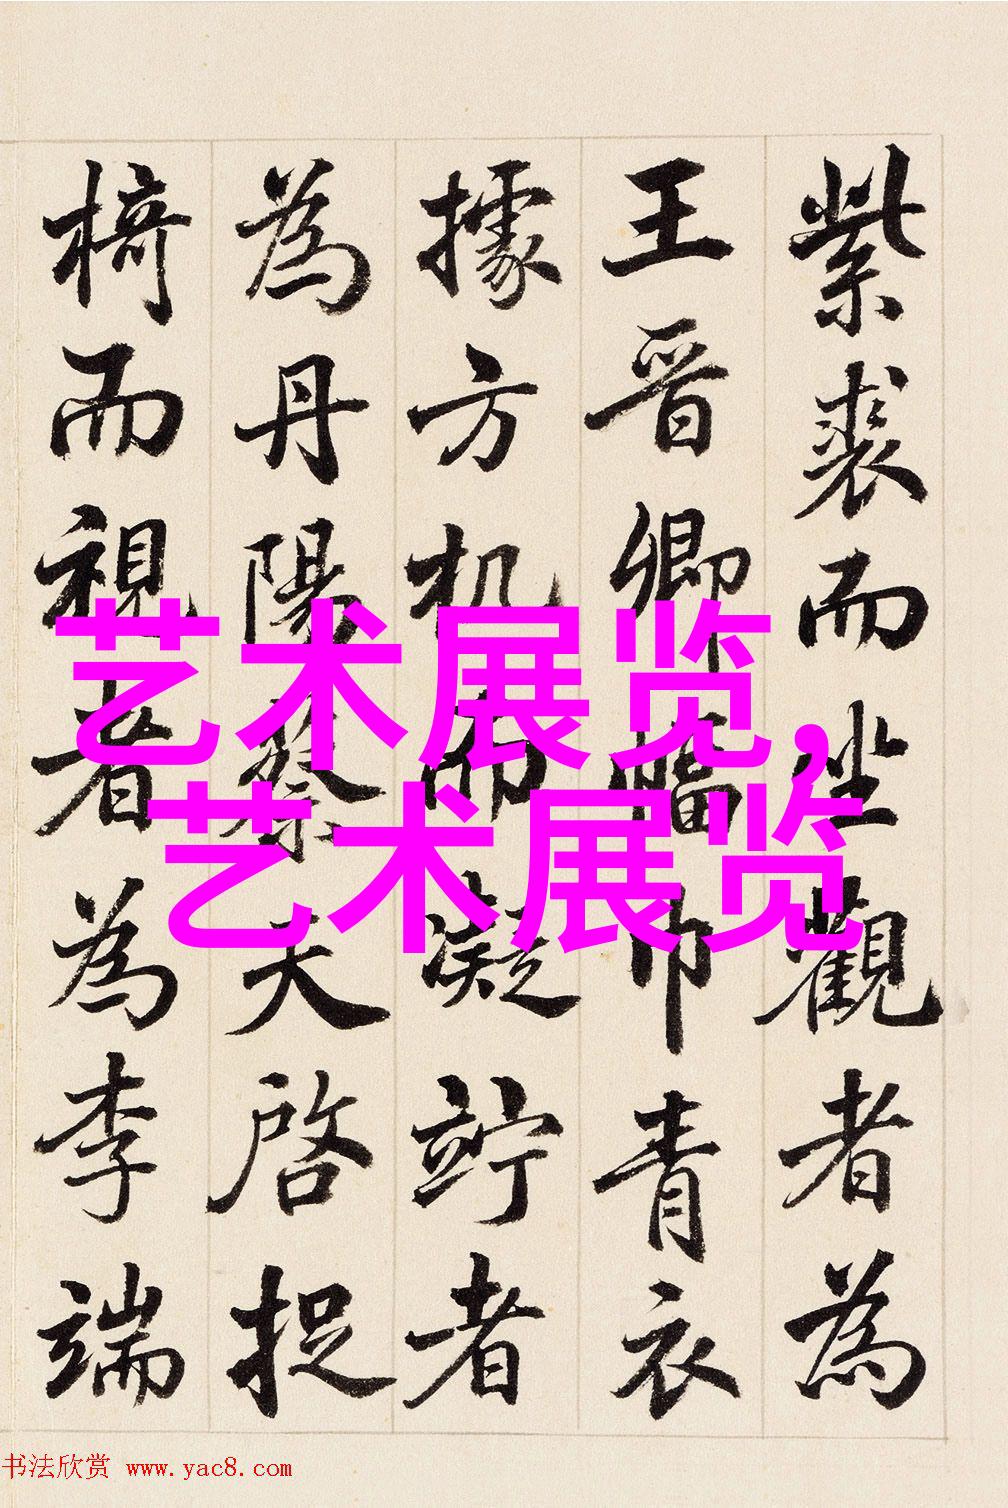 紫裘而坐觀者為
王晋卿幅巾青衣
據方机而凝竚者
為丹陽蔡天啓捉
椅而視者為李端
艺术展览,
艺术展览
书法欣赏 www.yac8.com